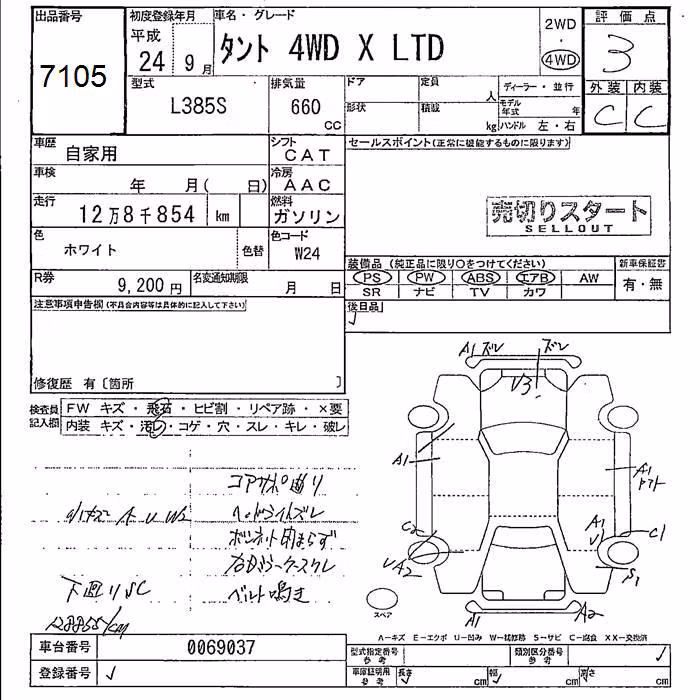 出品番号
7105
初度登録年月
平成
24 9月
車名・グレード
タント 4WD X LTD
2WD
・
4WD
評価点
3
外装 内装
C C
型式
L385S
排気量
660
CC
ドア
形状
定員
人
積載
kg
ディーラー・並行
モデル年式 年
ハンドル 左・右
車歴
自家用
シフト
CAT
車検
年 月( 日)
冷房
AAC
走行
12万8千854 km
燃料
ガソリン
色
ホワイト
色替
色コード
W24
R券
9,200円
名変通知期限
月 日
セールスポイント(正常に機能するものに限ります)
売切りスタート
SELLOUT
装備品(純正品に限り○をつけてください)
PS PW ABS エアB AW
SR ナビ TV カワ
新車保証書
有・無
後日品
注意事項申告欄(不具合内容等は具体的に記入して下さい)
修復歴 有〔箇所 〕
検査員記入欄
FW キズ・飛石・ヒビ割・リペア跡・×要
内装 キズ・汚レ・コゲ・穴・スレ・キレ・破レ
コアサポ曲り
ヘッドライトズレ
ボンネット閉まらず
ベルト鳴き
下廻りSC
128855km
A1 ズレ
ズレ
U3
A1
A1
C2
UA2
A1
U1
C1
S1
A1
A2
スペア
A―キズ E―エクボ U―凹み W―補修跡 S―サビ C―腐食 XX―交換済
車台番号
0069037
登録番号
型式指定番号
参考
類別区分番号
参考
車庫証明用
参考
長さ cm 幅 cm 高さ cm